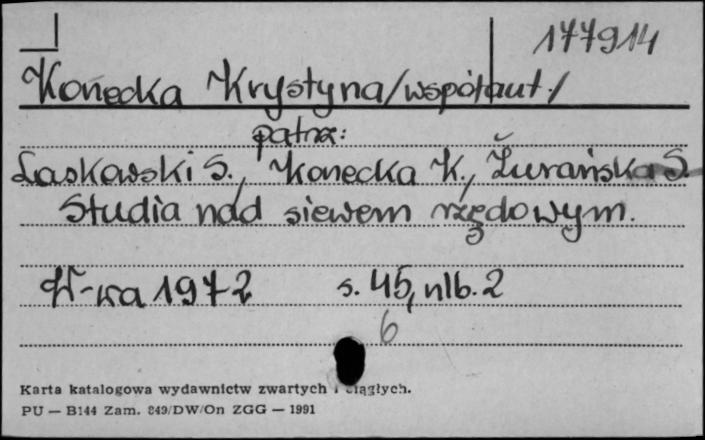 177914
Konecka Krystyna/współaut./
patrz:
Laskowski S., Konecka K., Żurańska S.
Studia nad siewem rzędowym.
W-wa 1972 s. 45, nlb. 2
6
Karta katalogowa wydawnictw zwartych i ciągłych.
PU — B144 Zam. 849/DW/On ZGG — 1991